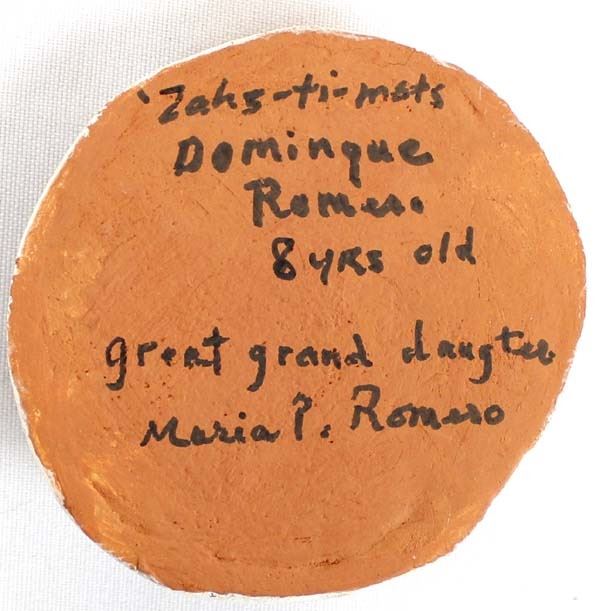 'Zahs-ti-mets
Dominque
Romero
8 yrs old
great grand daugter
Maria P. Romero